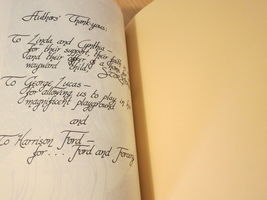 Authors' Thank-yous:
To Linda and Cynthia —
for their support, their faith,
and their offer of a home for
wayward Child
To George Lucas —
for allowing us to play in his
magnificent playground
and
To Harrison Ford —
for . . . Ford and Forcey